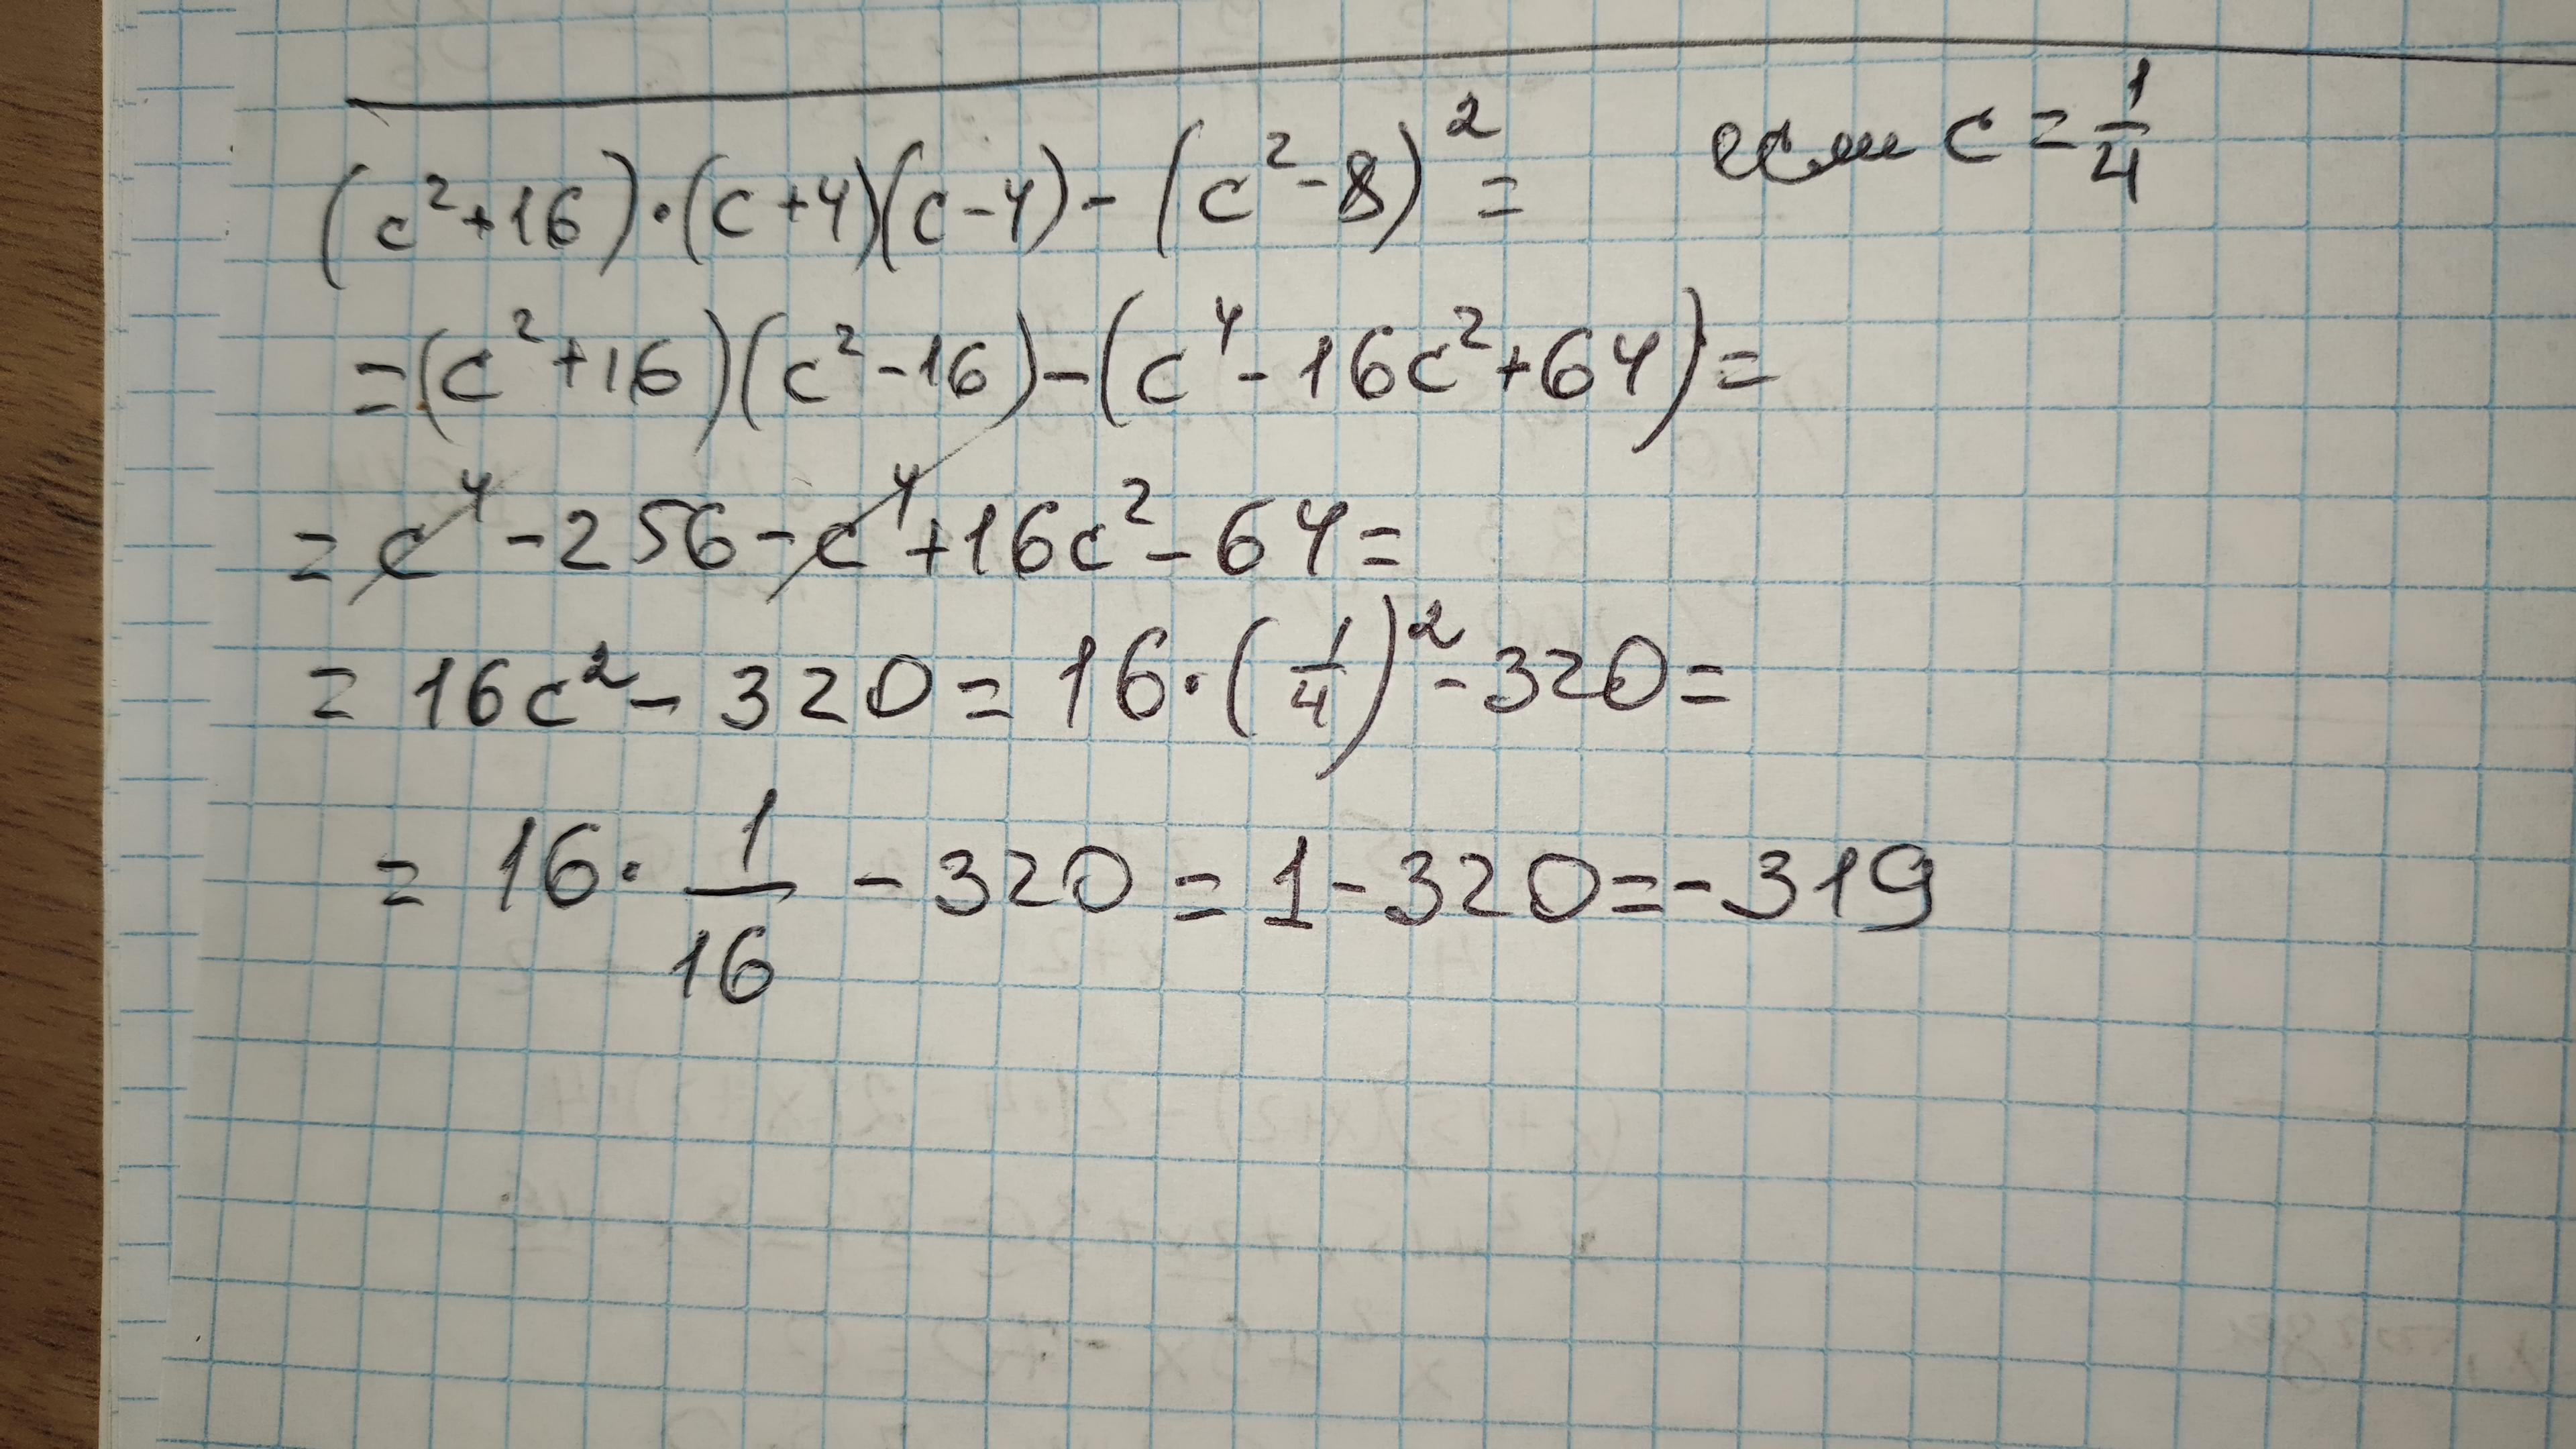 (c²+16)·(c+4)(c-4)-(c²-8)²= если c=1/4
=(c²+16)(c²-16)-(c⁴-16c²+64)=
=c⁴-256-c⁴+16c²-64=
=16c²-320=16·(1/4)²-320=
=16·1/16-320=1-320=-319